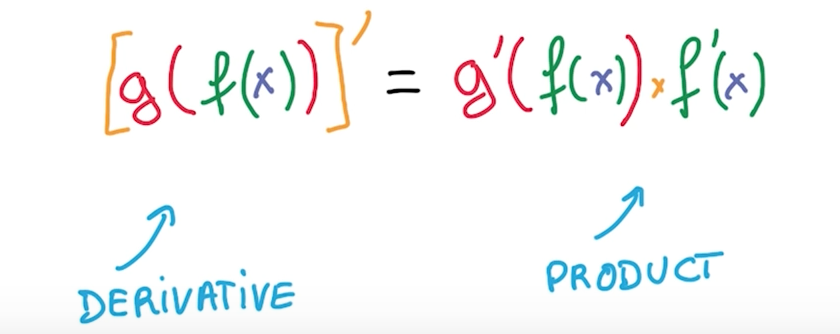 [g(f(x))]' = g'(f(x)) × f'(x)
DERIVATIVE
PRODUCT